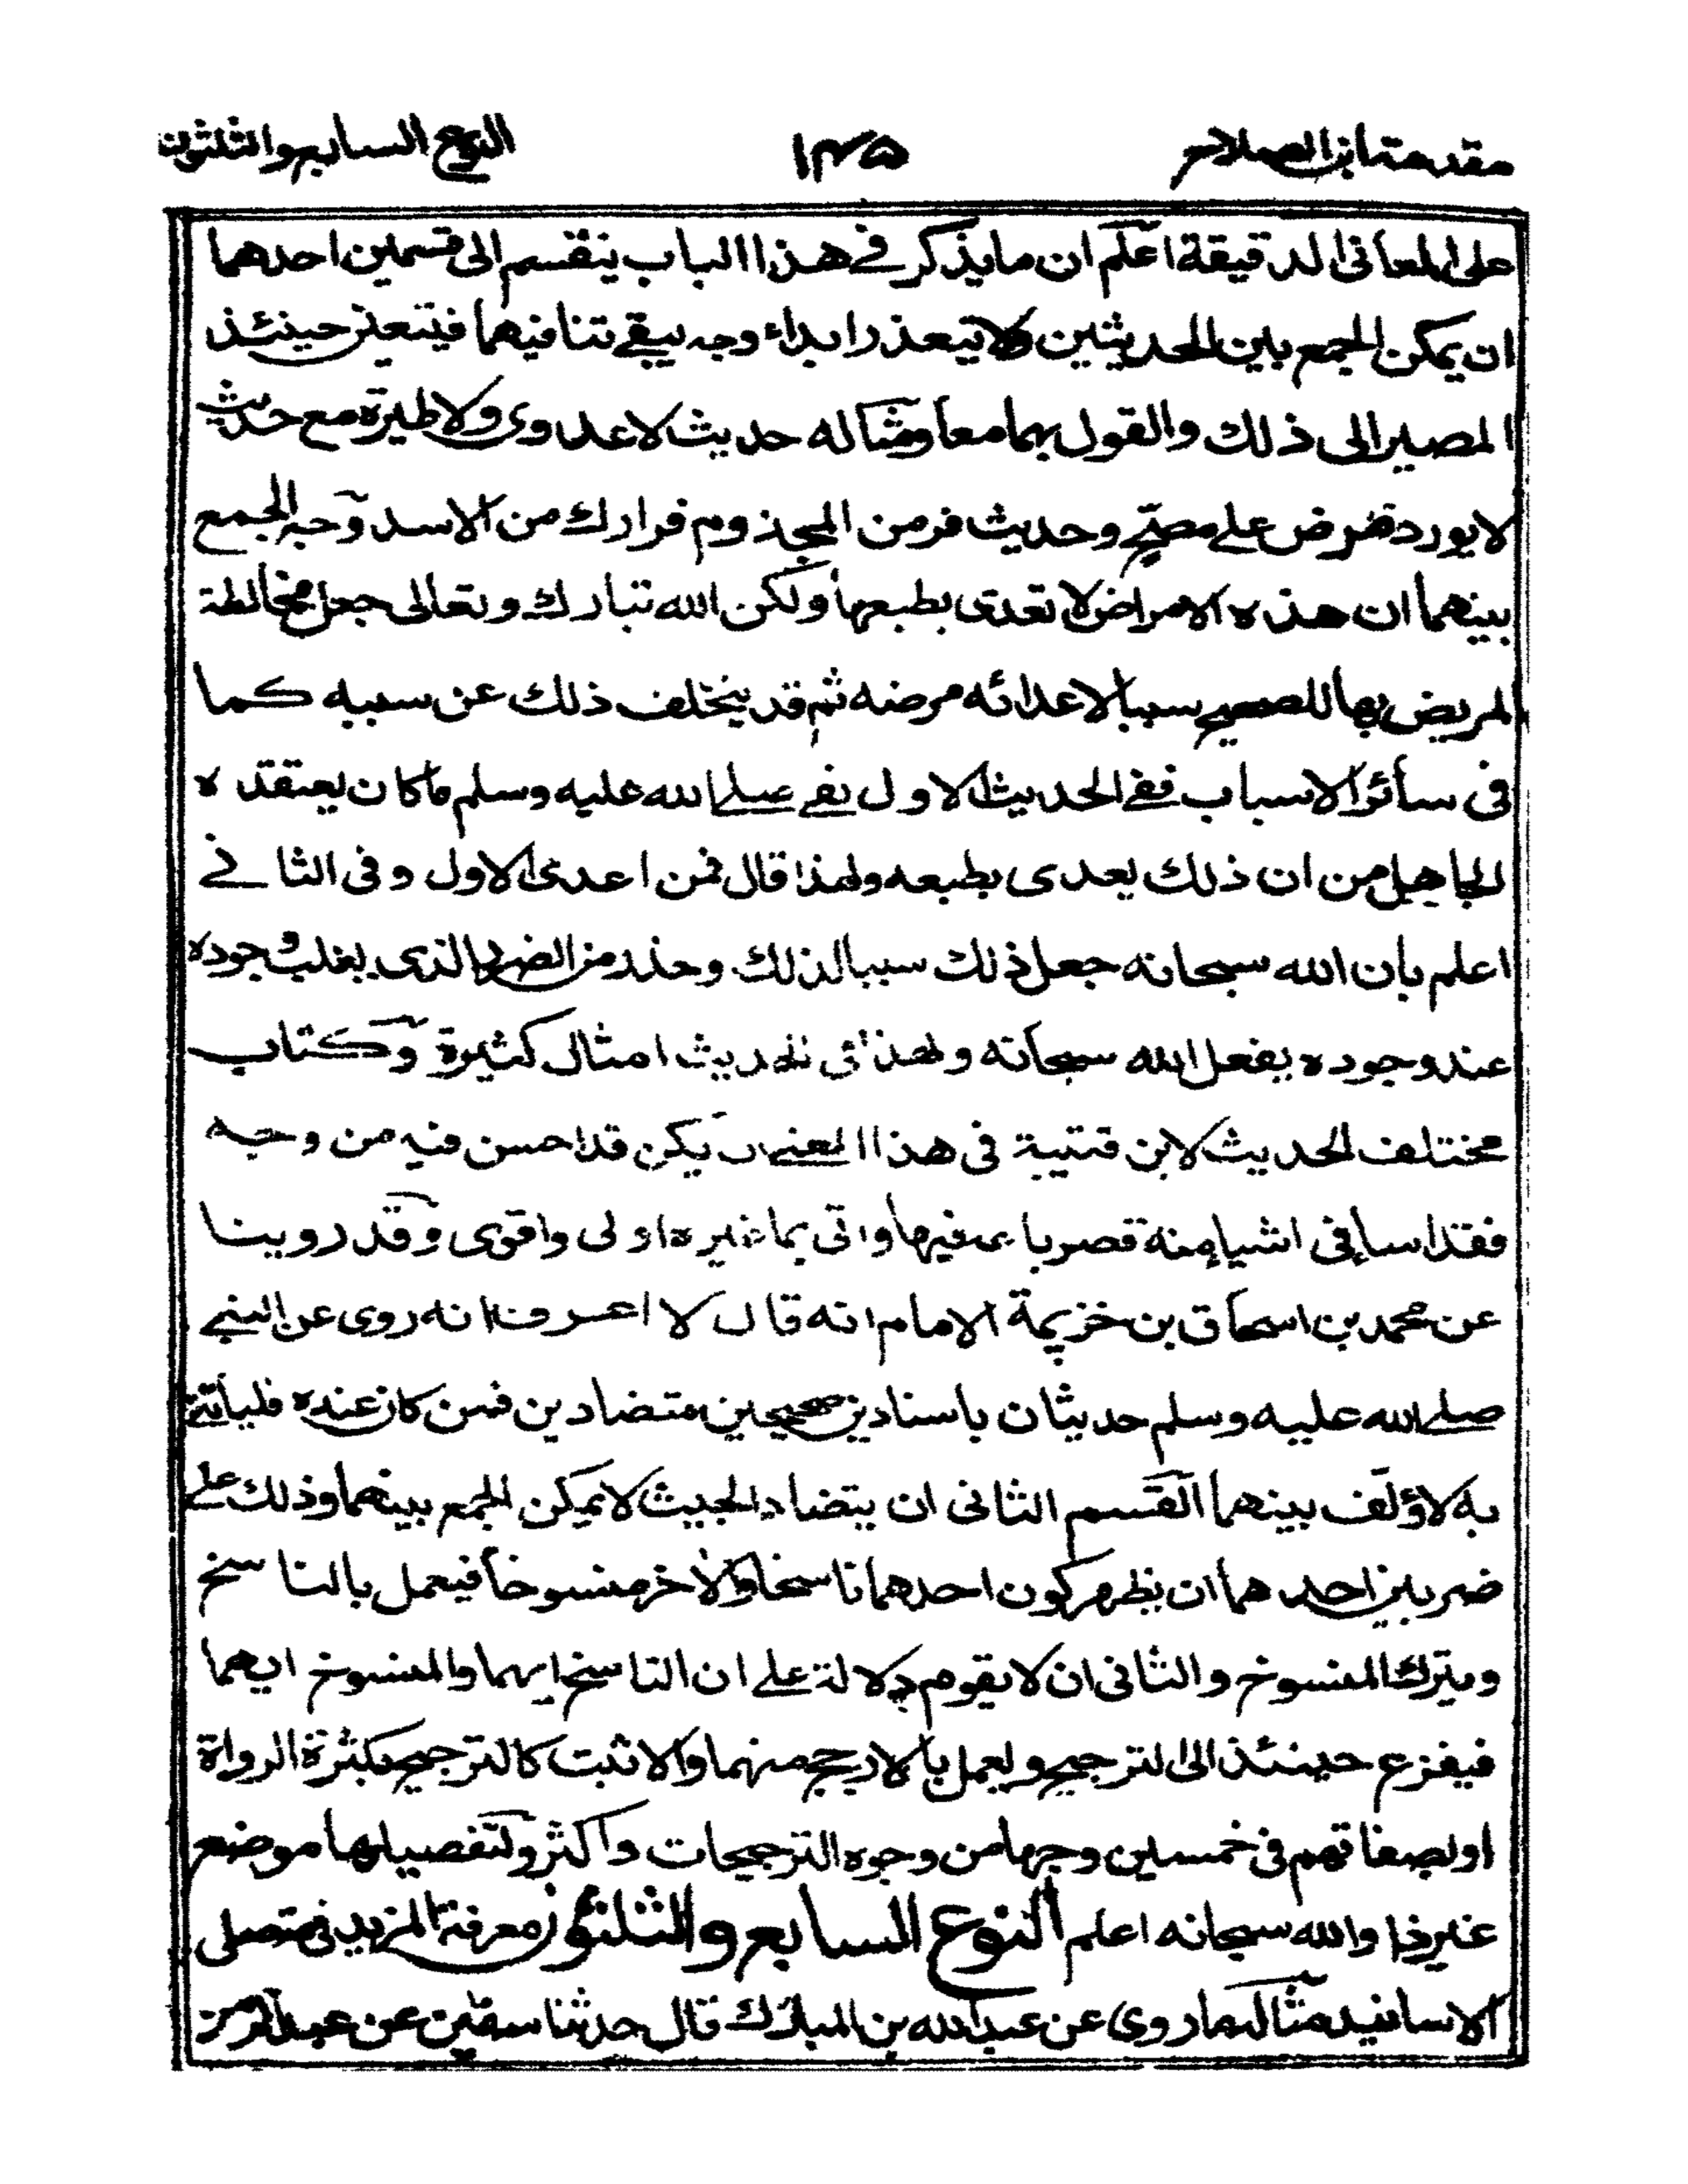 مقدمة ابن الصلاح ١٣٥ النوع السابع والثلثون
على المعانى الدقيقة اعلم ان ما يذكر فى هذا الباب ينقسم الى قسمين احدهما
ان يمكن الجمع بين الحديثين ولا يتعذر ابداء وجه يبقى تنافيهما فيتعين حينئذ
المصير الى ذلك والقول بهما معا ومثاله حديث لا عدوى ولا طيرة مع حديث
لا يورد ممرض على مصح وحديث فر من المجذوم فرارك من الاسد وجه الجمع
بينهما ان هذه الامراض لا تعدى بطبعها ولكن الله تبارك وتعالى جعل مخالطة
المريض بها للصحيح سببا لاعدائه مرضه ثم قد يتخلف ذلك عن سببه كما
فى سائر الاسباب ففى الحديث الاول نفى صلى الله عليه وسلم ما كان يعتقده
الجاهل من ان ذلك يعدى بطبعه ولهذا قال فمن اعدى الاول وفى الثانى
اعلم بان الله سبحانه جعل ذلك سببا لذلك وحذر من الضرر الذى يغلب وجوده
عند وجوده بفعل الله سبحانه ولهذا فى الحديث امثال كثيرة وكتاب
مختلف الحديث لابن قتيبة فى هذا المعنى ان يكن قد احسن فيه من وجه
فقد اساء فى اشياء منه قصر باعه فيها واتى بما غيره اولى واقوى وقد روينا
عن محمد بن اسحاق بن خزيمة الامام انه قال لا اعرف انه روى عن النبى
صلى الله عليه وسلم حديثان باسنادين صحيحين متضادين فمن كان عنده فليأتنى
به لاؤلف بينهما القسم الثانى ان يتضادا بحيث لا يمكن الجمع بينهما وذلك على
ضربين احدهما ان يظهر كون احدهما ناسخا والاخر منسوخا فيعمل بالناسخ
ويترك المنسوخ والثانى ان لا يقوم دلالة على ان الناسخ ايهما والمنسوخ ايهما
فيفزع حينئذ الى الترجيح ويعمل بالارجح منهما والاثبت كالترجيح بكثرة الرواة
او بصفاتهم فى خمسين وجها من وجوه الترجيحات واكثر ولتفصيلها موضع
غير ذا والله سبحانه اعلم النوع السابع والثلثون معرفة المزيد فى متصل
الاسانيد مثاله ما روى عن عبد الله بن المبارك قال حدثنا سفين عن عبد الرحمن